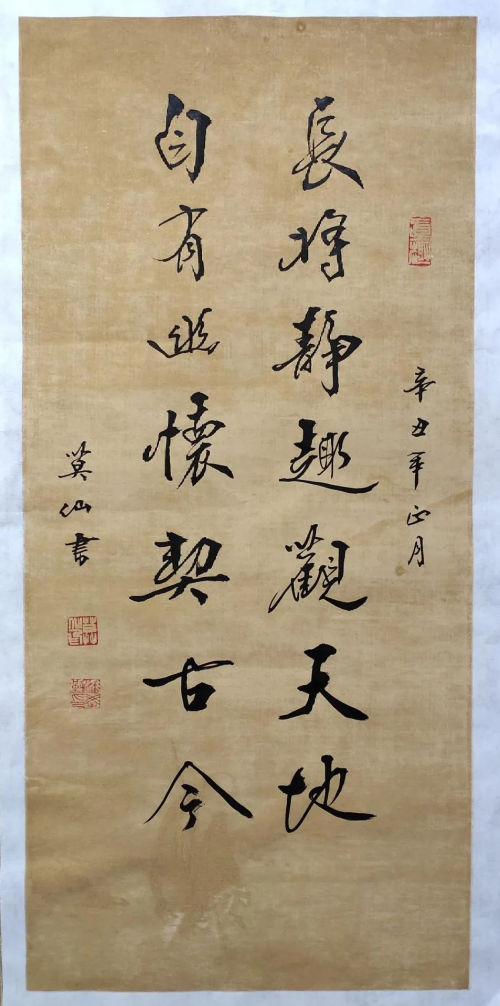 辛丑年正月
長將靜趣觀天地
自有幽懷契古今
莫仙書